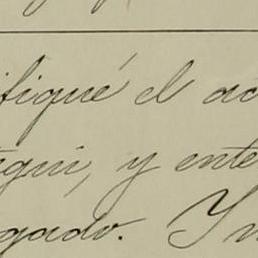 ifiqué el ac
egui, y ente
gado. Y n